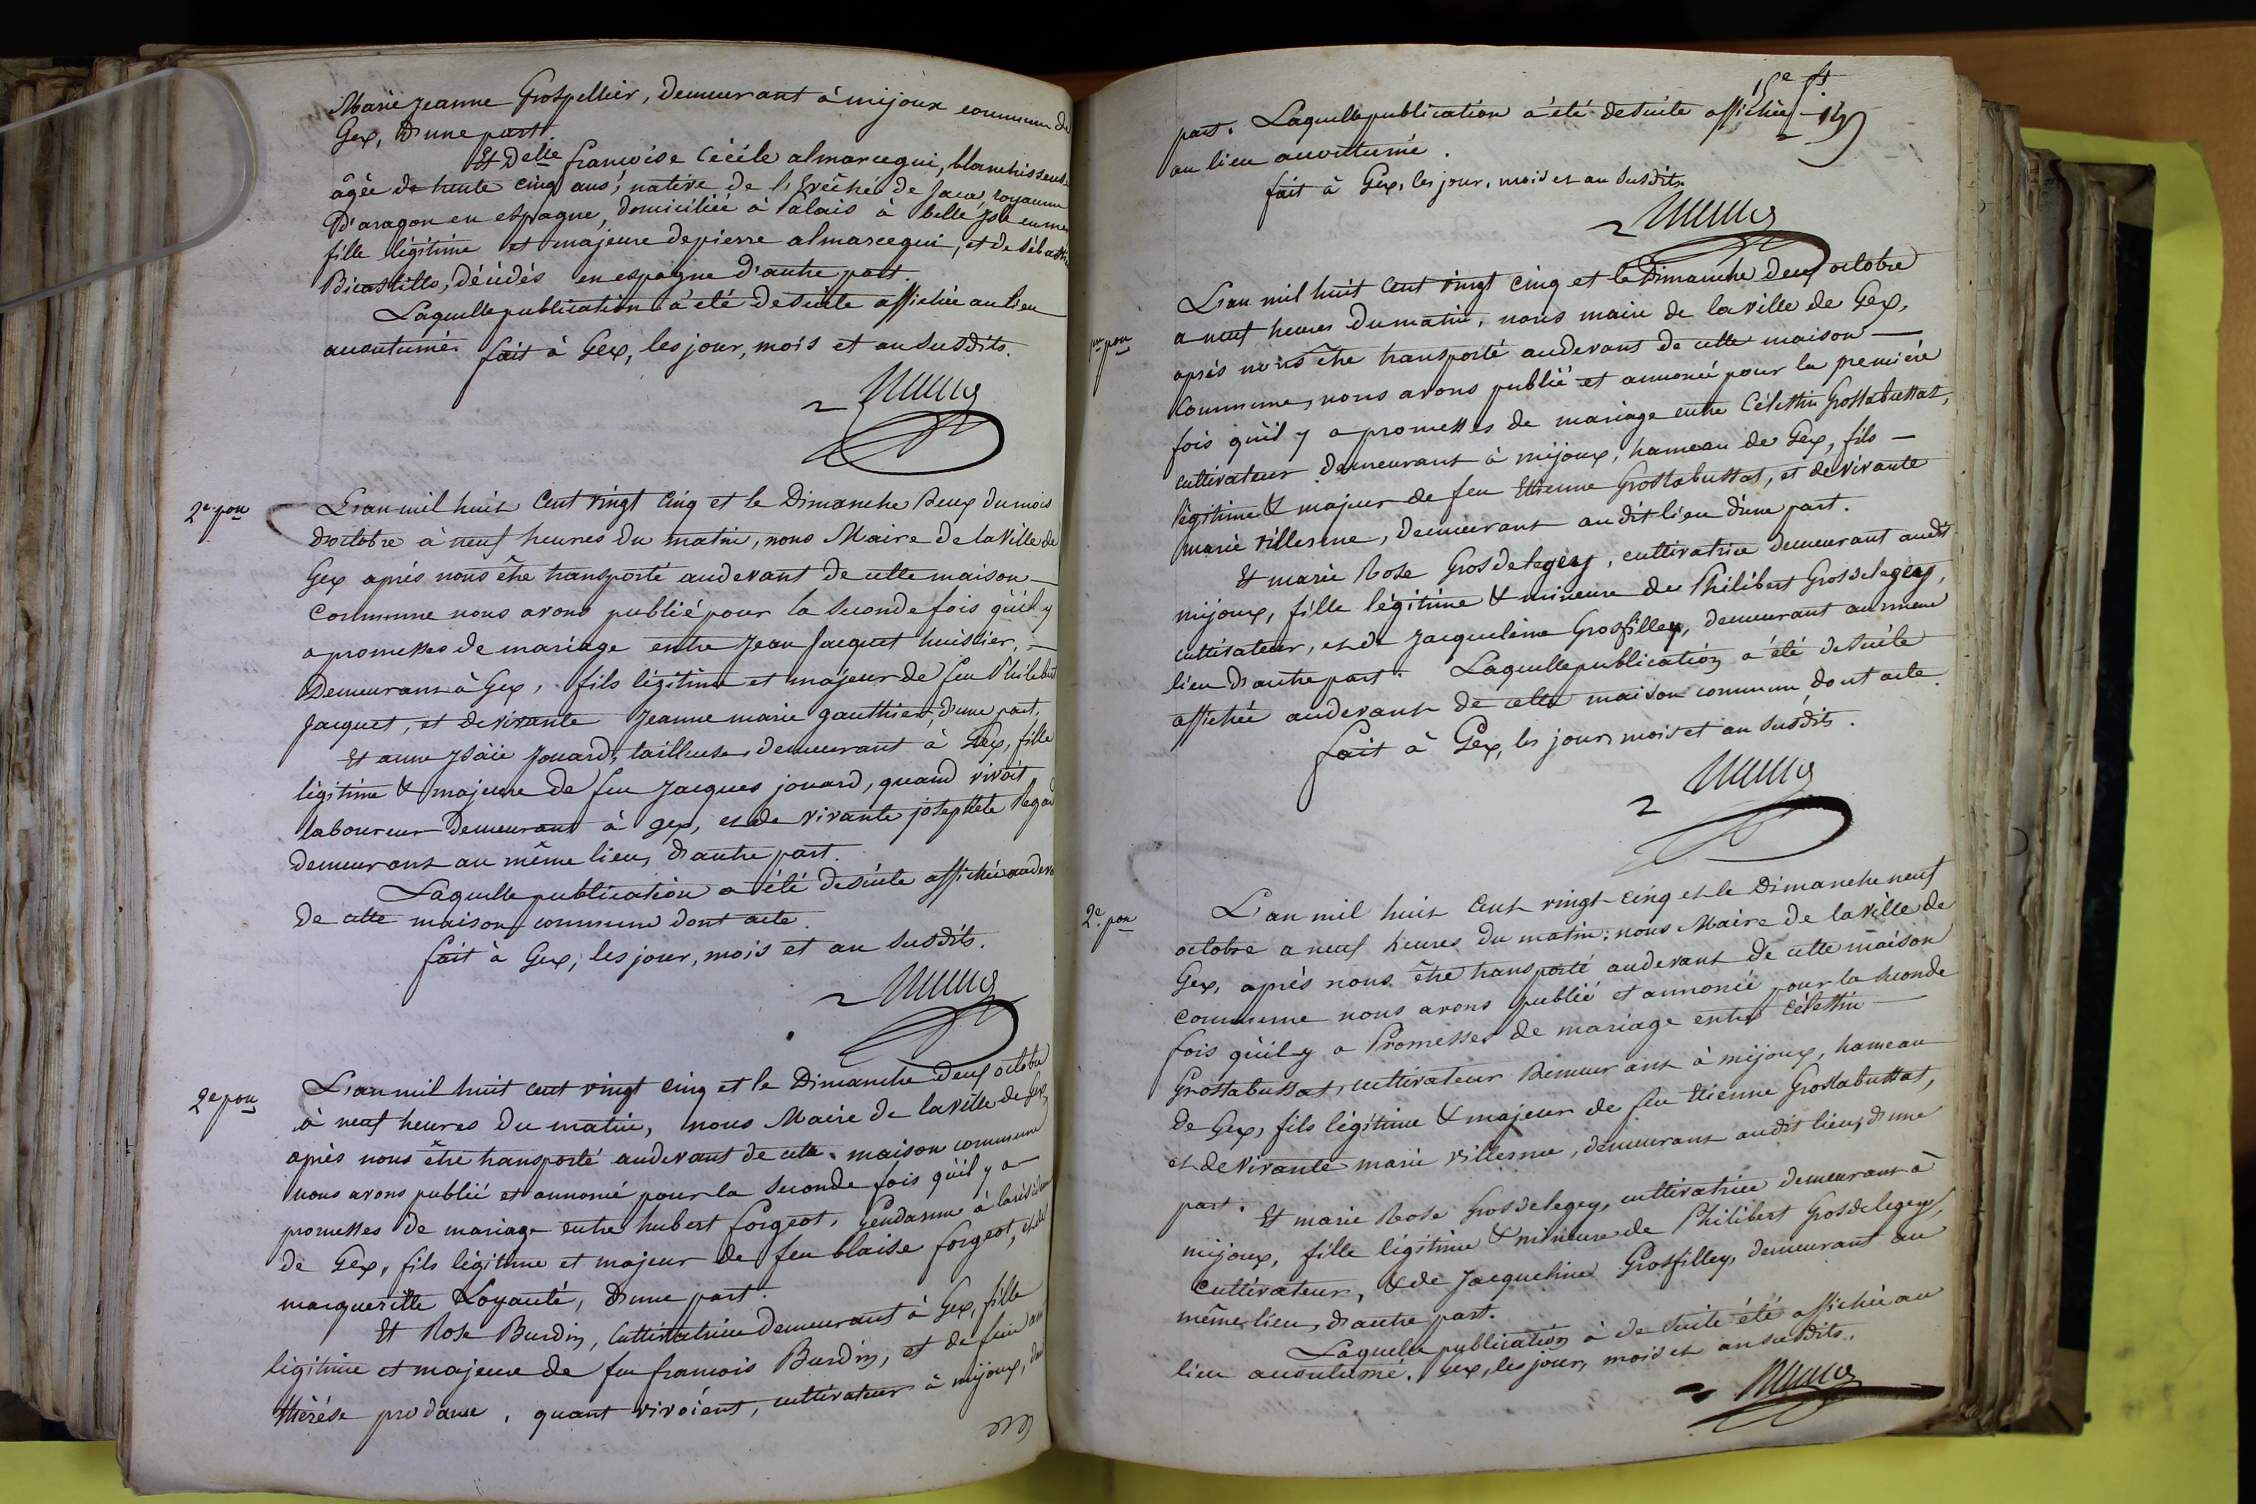 Marie Jeanne Grospellier, demeurant à mijoux commune de
Gex, d'une part.
Et Delle francoise Cécile almarcegui, blanchisseuse
âgée de trente cinq ans, native de l'Evêché de Jaca, royaume
D'aragon en espagne, domiciliée à Palais à belle Isle en mer
fille légitime et majeure de pierre almarcegui, et de
Bicastillo, décédés en espagne d'autre part.
Laquelle publication a été desuite affichée au lieu
accoutumé. fait à Gex, les jour, mois et an susdits.
2e pon
L'an mil huit cent vingt cinq et le Dimanche Deux du mois
d'octobre à neuf heures du matin, nous Maire de la Ville de
Gex après nous être transporté audevant de cette maison
commune nous avons publié pour la seconde fois qu'il y
a promesses de mariage entre Jean Jacquet huissier,
Demeurant à Gex, fils légitime et majeur de feu Philibert
Jacquet, et de vivante Jeanne marie gauthier, d'une part.
Et anne Isaïe Jouard, tailleuse, demeurant à Gex, fille
légitime & majeure de feu Jacques jouard, quand vivoit
laboureur demeurant à gex, et de vivante josephete Regad
demeurant au même lieu, d'autre part.
Laquelle publication a été desuite affichée audevant
de cette maison commune dont acte.
fait à Gex, les jour, mois et an susdits.
2e pon
L'an mil huit cent vingt cinq et le Dimanche deux octobre
à neuf heures du matin, nous Maire de la ville de Gex,
après nous être transporté audevant de cette maison commune
nous avons publié et annoncé pour la seconde fois qu'il y a
promesses de mariage entre hubert forgeot, gendarme à la résidence
de Gex, fils légitime et majeur de feu blaise forgeot, et de
marguerite Loyauté, d'une part.
Et Rose Burdin, Cultivatrice demeurant à Gex, fille
légitime et majeure de feu francois Burdin, et de feue
thérèse prodane, quant vivoient, cultivateur à mijoux,
15e ft
part. Laquelle publication a été desuite affichée
au lieu accoutumé.
fait à Gex, les jour, mois et an susdits.
1ere pon
L'an mil huit cent vingt cinq et le Dimanche deux octobre
a neuf heures du matin, nous maire de la ville de Gex,
après nous être transporté audevant de cette maison
Commune, nous avons publié et annoncé pour la première
fois qu'il y a promesses de mariage entre Célestin Grostabussat,
cultivateur Demeurant à mijoux, hameau de Gex, fils
légitime & majeur de feu Etienne Grostabussat, et de vivante
marie villerme, demeurant au dit lieu d'une part.
Et marie Rose Grosdelegey, cultivatrice demeurant audit
mijoux, fille légitime & mineure de Philibert Grosdelegey,
cultivateur, et de Jacqueline Grosfilley, demeurant au même
lieu d'autre part. Laquelle publication a été desuite
affichée audevant de cette maison commune, dont acte.
fait à Gex, les jour, mois et an susdits.
2e pon
L'an mil huit cent vingt-cinq et le Dimanche neuf
octobre a neuf heures du matin, nous Maire de la Ville de
Gex, après nous être transporté audevant de cette maison
commune nous avons publié et annoncé pour la seconde
fois qu'il y a Promesses de mariage entre Célestin
Grostabussat, cultivateur Demeurant à mijoux, hameau
de Gex, fils légitime & majeur de feu Etienne Grostabussat,
et de vivante marie villerme, demeurant audit lieu, d'une
part. Et marie Rose Grosdelegey, cultivatrice demeurant à
mijoux, fille légitime & mineure de Philibert Grosdelegey,
Cultivateur, & de Jacqueline Grosfilley, demeurant au
même lieu, d'autre part.
Laquelle publication a de suite été affichée au
lieu accoutumé. Gex, les jour, mois et an susdits.